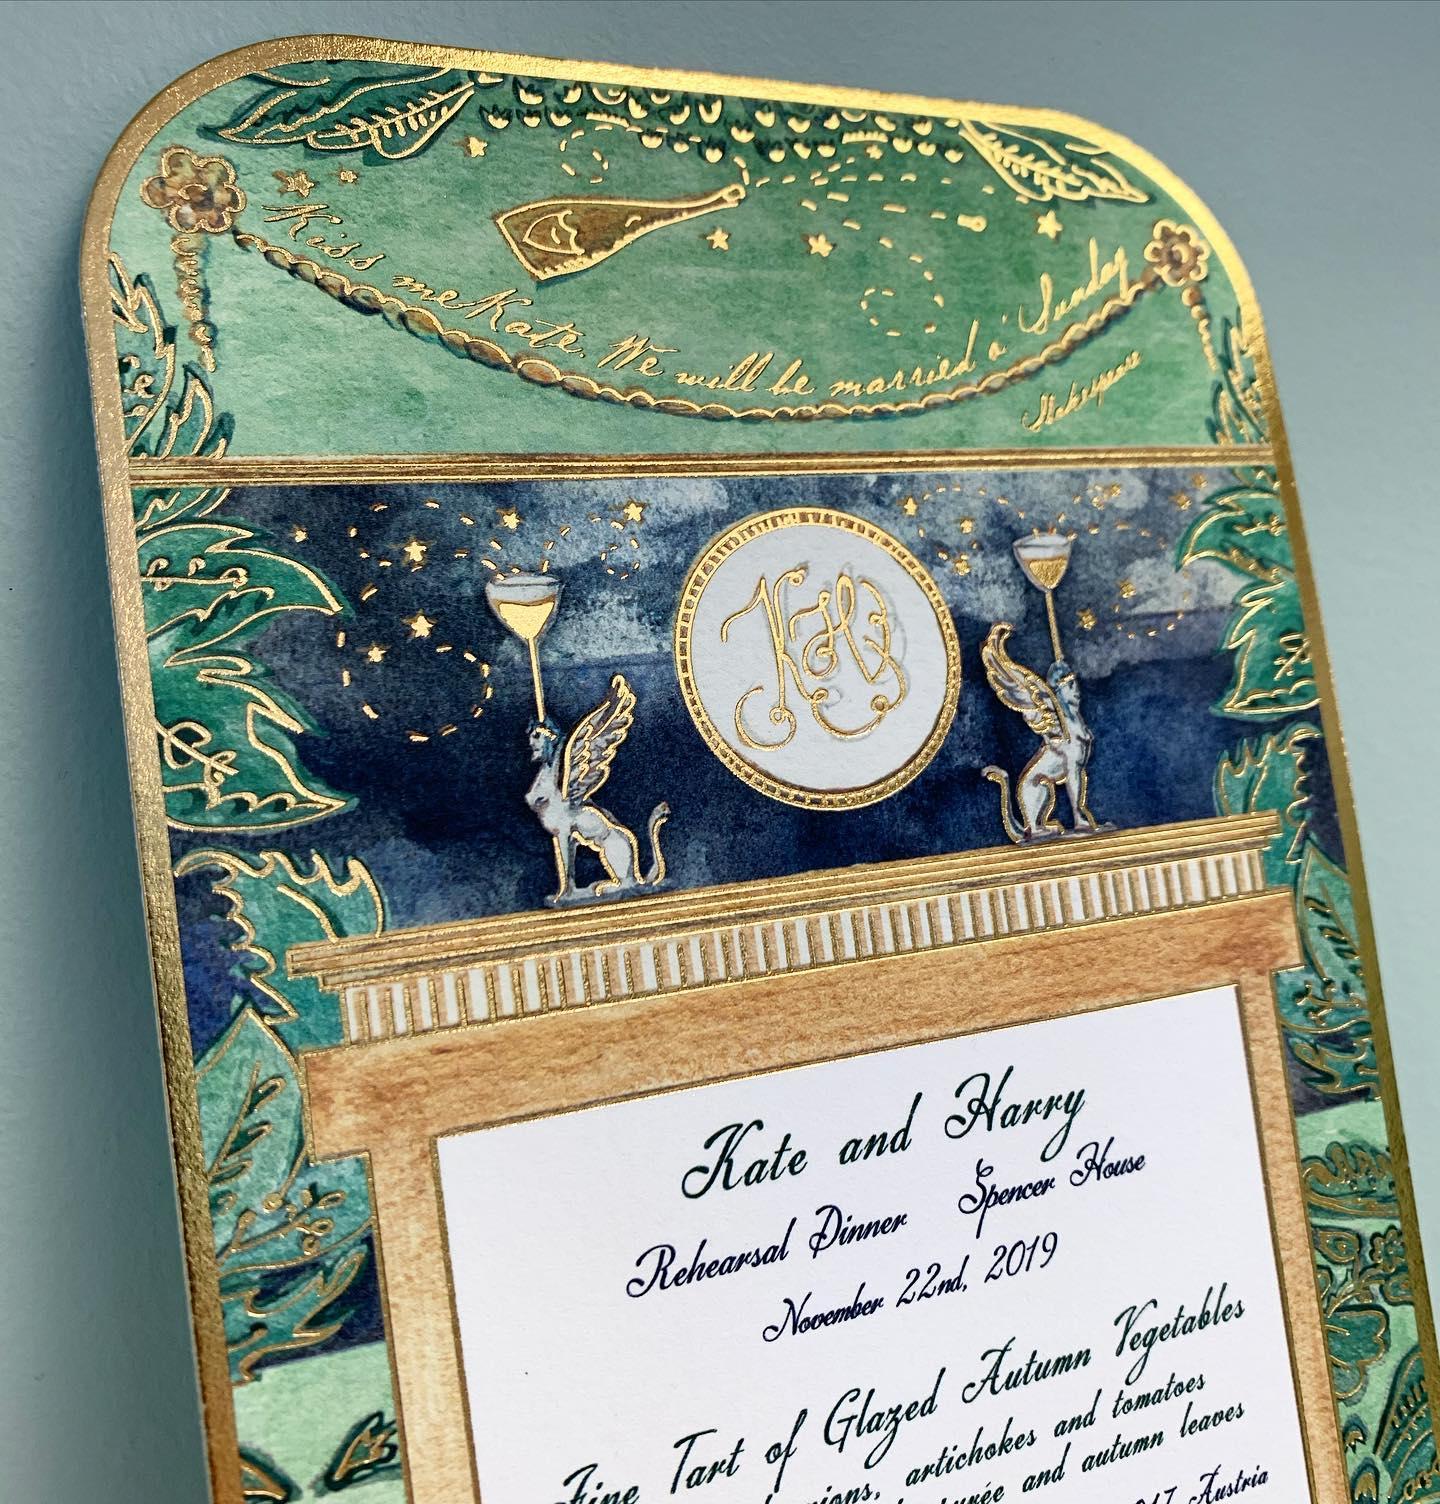 Kiss me Kate. We will be married o' Sunday
Shakespeare
KHB
Kate and Harry
Rehearsal Dinner Spencer House
November 22nd, 2019
Fine Tart of Glazed Autumn Vegetables
artichokes and tomatoes
and autumn leaves
Austria